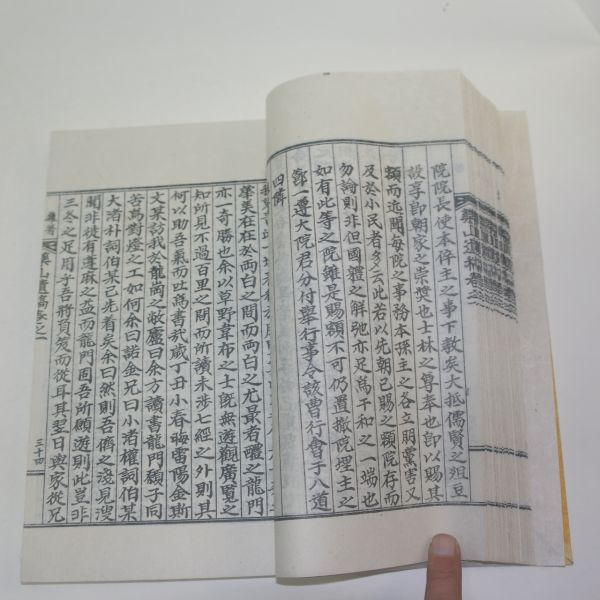 院院長使本倅主之事下教矣大抵儒賢之俎豆
設享卽朝家之崇奬也士林之尊奉也卽以賜其
額而近聞每院之事務本孫主之各立朋黨害又
及於小民者多云此若以先朝已賜之額院存而
勿論則非但國體之解弛亦足爲干和之一端也
如有此等之院雖是賜額不可仍置撤院埋主之
節一遵大院君分付擧行事令該曹行會于八道
四倅
華美在於兩白之間而兩白之尤最者醴之龍門
亦一奇勝也余以草野韋布之士旣無遊觀廣覽之
知所見不過百里之間而所讀未涉七經之外則其
何以助吾氣而吐爲書哉歲丁丑小春晦雷陽金斯
文某訪我於龍崗之敝廬曰余方讀書龍門願子同
苦爲對燈之工如何余曰諾金兄曰小渚權詞伯某
大渚朴詞伯某已先着矣余曰然則吾儕之淺見溲
聞非徒有蓬麻之益而龍門固吾所願遊則此豈非
三冬之足用乎吾將負笈而從耳其翌日與家從兄
雜著 山遺稿卷之一 三十四